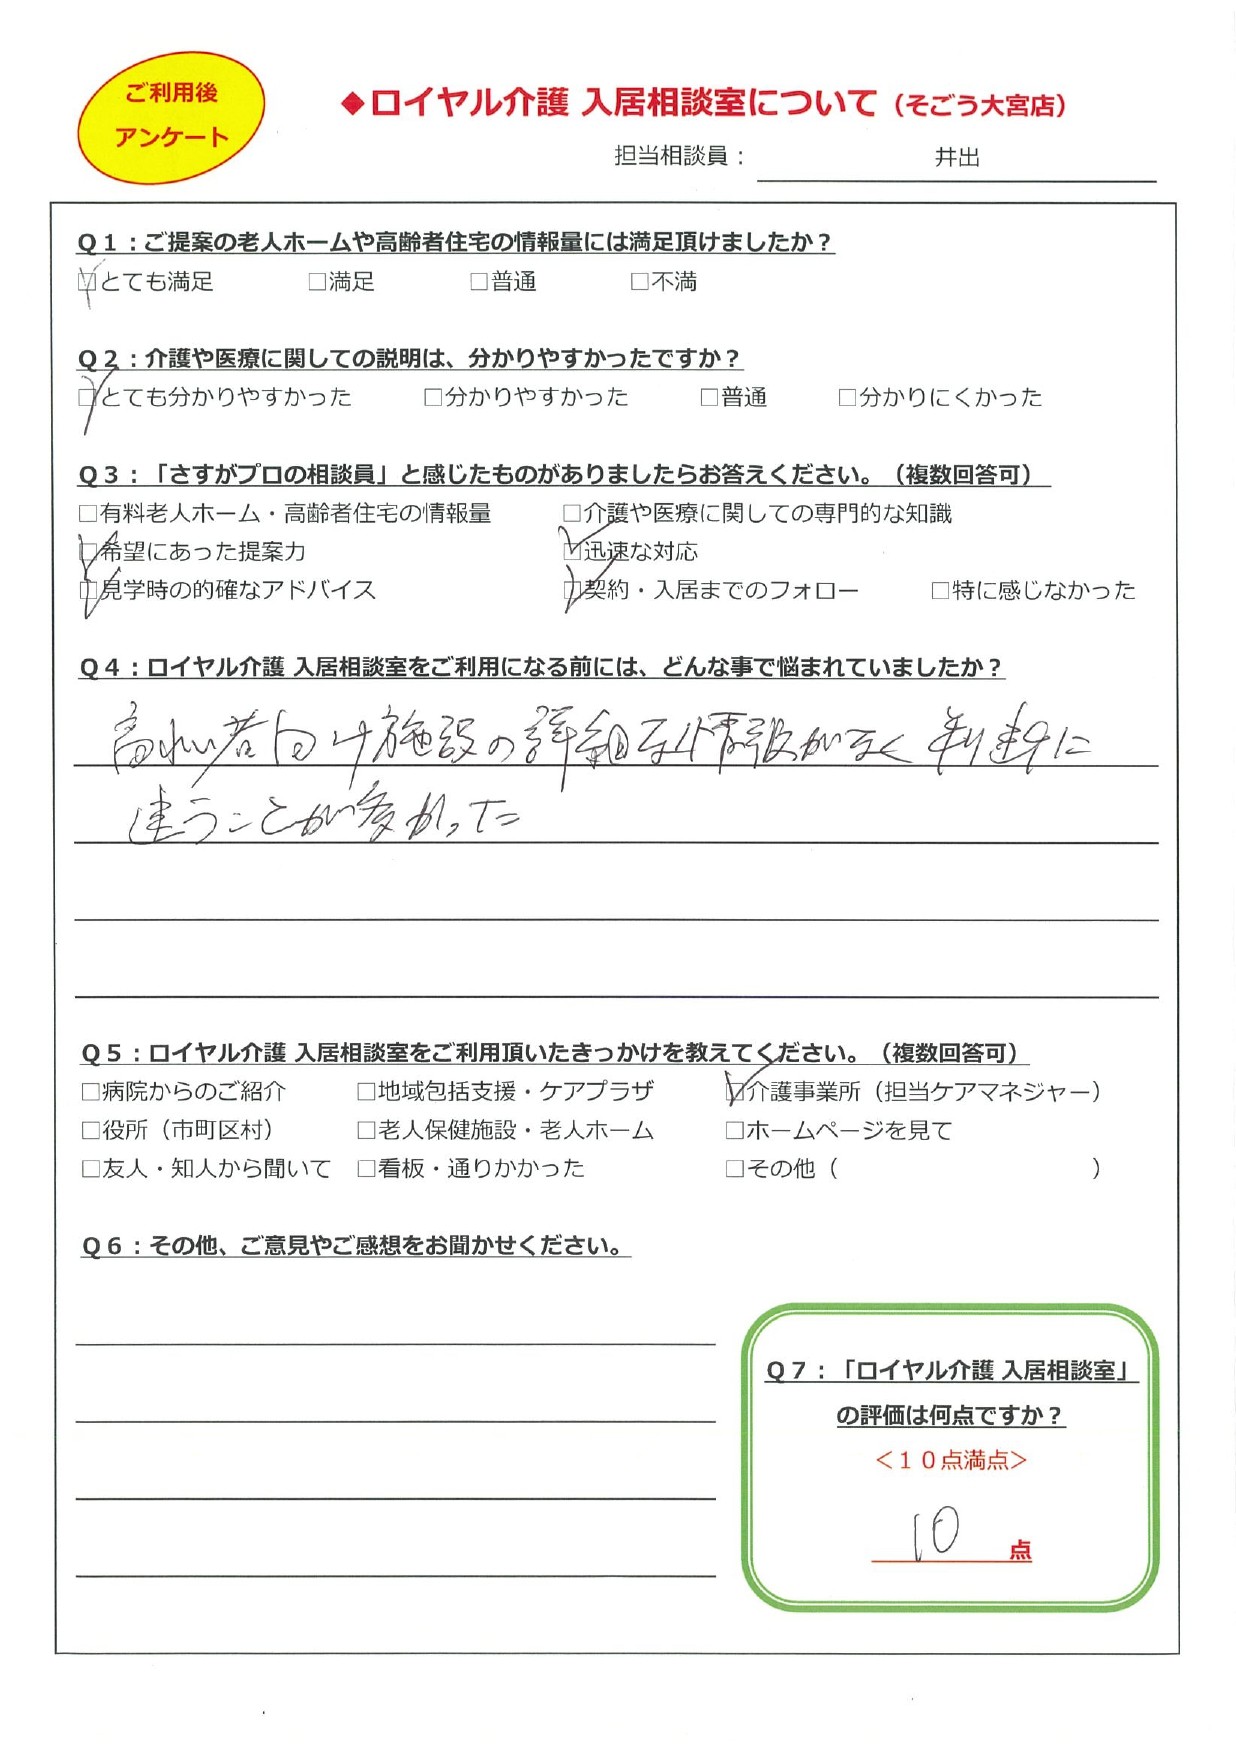 ご利用後
アンケート
◆ロイヤル介護 入居相談室について（そごう大宮店）
担当相談員： 井出
Q1：ご提案の老人ホームや高齢者住宅の情報量には満足頂けましたか？
☑とても満足 □満足 □普通 □不満
Q2：介護や医療に関しての説明は、分かりやすかったですか？
☑とても分かりやすかった □分かりやすかった □普通 □分かりにくかった
Q3：「さすがプロの相談員」と感じたものがありましたらお答えください。（複数回答可）
□有料老人ホーム・高齢者住宅の情報量 □介護や医療に関しての専門的な知識
☑希望にあった提案力 ☑迅速な対応
☑見学時の的確なアドバイス ☑契約・入居までのフォロー □特に感じなかった
Q4：ロイヤル介護 入居相談室をご利用になる前には、どんな事で悩まれていましたか？
高れい者向け施設の詳細な情報がなく判断に
迷うことが多かった
Q5：ロイヤル介護 入居相談室をご利用頂いたきっかけを教えてください。（複数回答可）
□病院からのご紹介 □地域包括支援・ケアプラザ ☑介護事業所（担当ケアマネジャー）
□役所（市町区村） □老人保健施設・老人ホーム □ホームページを見て
□友人・知人から聞いて □看板・通りかかった □その他（ ）
Q6：その他、ご意見やご感想をお聞かせください。
Q7：「ロイヤル介護 入居相談室」
の評価は何点ですか？
＜１０点満点＞
10 点